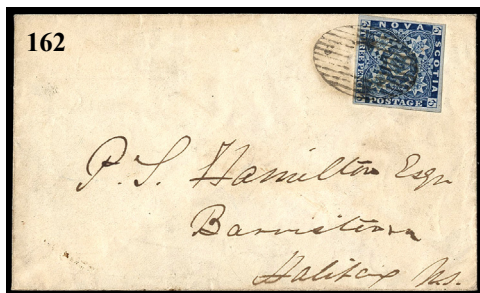 162
NOVA
SCOTIA
POSTAGE
P. S. Hamilton Esqr
Barrister
Halifax N.S.